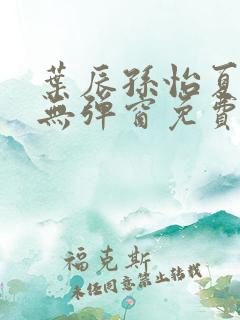 葉辰孫怡夏
無彈窗免費
福克斯
未經同意禁止轉載